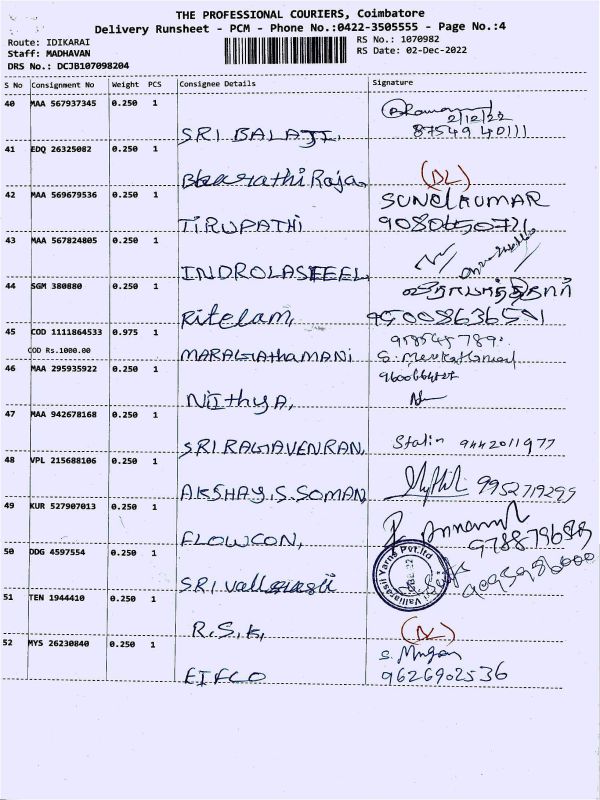 THE PROFESSIONAL COURIERS, Coimbatore
Delivery Runsheet - PCM - Phone No.:0422-3505555 - Page No.:4
Route: IDIKARAI
RS No.: 1070982
Staff: MADHAVAN
RS Date: 02-Dec-2022
DRS No.: DCJB107098204
S No Consignment No Weight PCS Consignee Details Signature
40 MAA 567937345 0.250 1
2/12/22
SRI BALAJI, 87549 40111
41 EDQ 26325082 0.250 1
Bharathi Raja (DL)
42 MAA 569679536 0.250 1 SUNIL KUMAR
TIRUPATHI 9080650721
43 MAA 567824805 0.250 1
INDROLASTEEL
44 SGM 380880 0.250 1
Ritelam, 9500863651
45 COD 1111864533 0.975 1
COD Rs.1000.00 MARAGATHAMANI
46 MAA 295935922 0.250 1
NITHYA,
47 MAA 942678168 0.250 1
SRI RAGAVENRAN, Stalin 9442011977
48 VPL 215688106 0.250 1
AKSHAY.S.SOMAN 9952719299
49 KUR 527907013 0.250 1
FLOWCON,
50 DDG 4597554 0.250 1
Yarns Pvt.ltd
51 TEN 1944410 0.250 1
R.S.K, (DL)
52 MYS 26230840 0.250 1 S. Mugan
EIFCO 9626902536